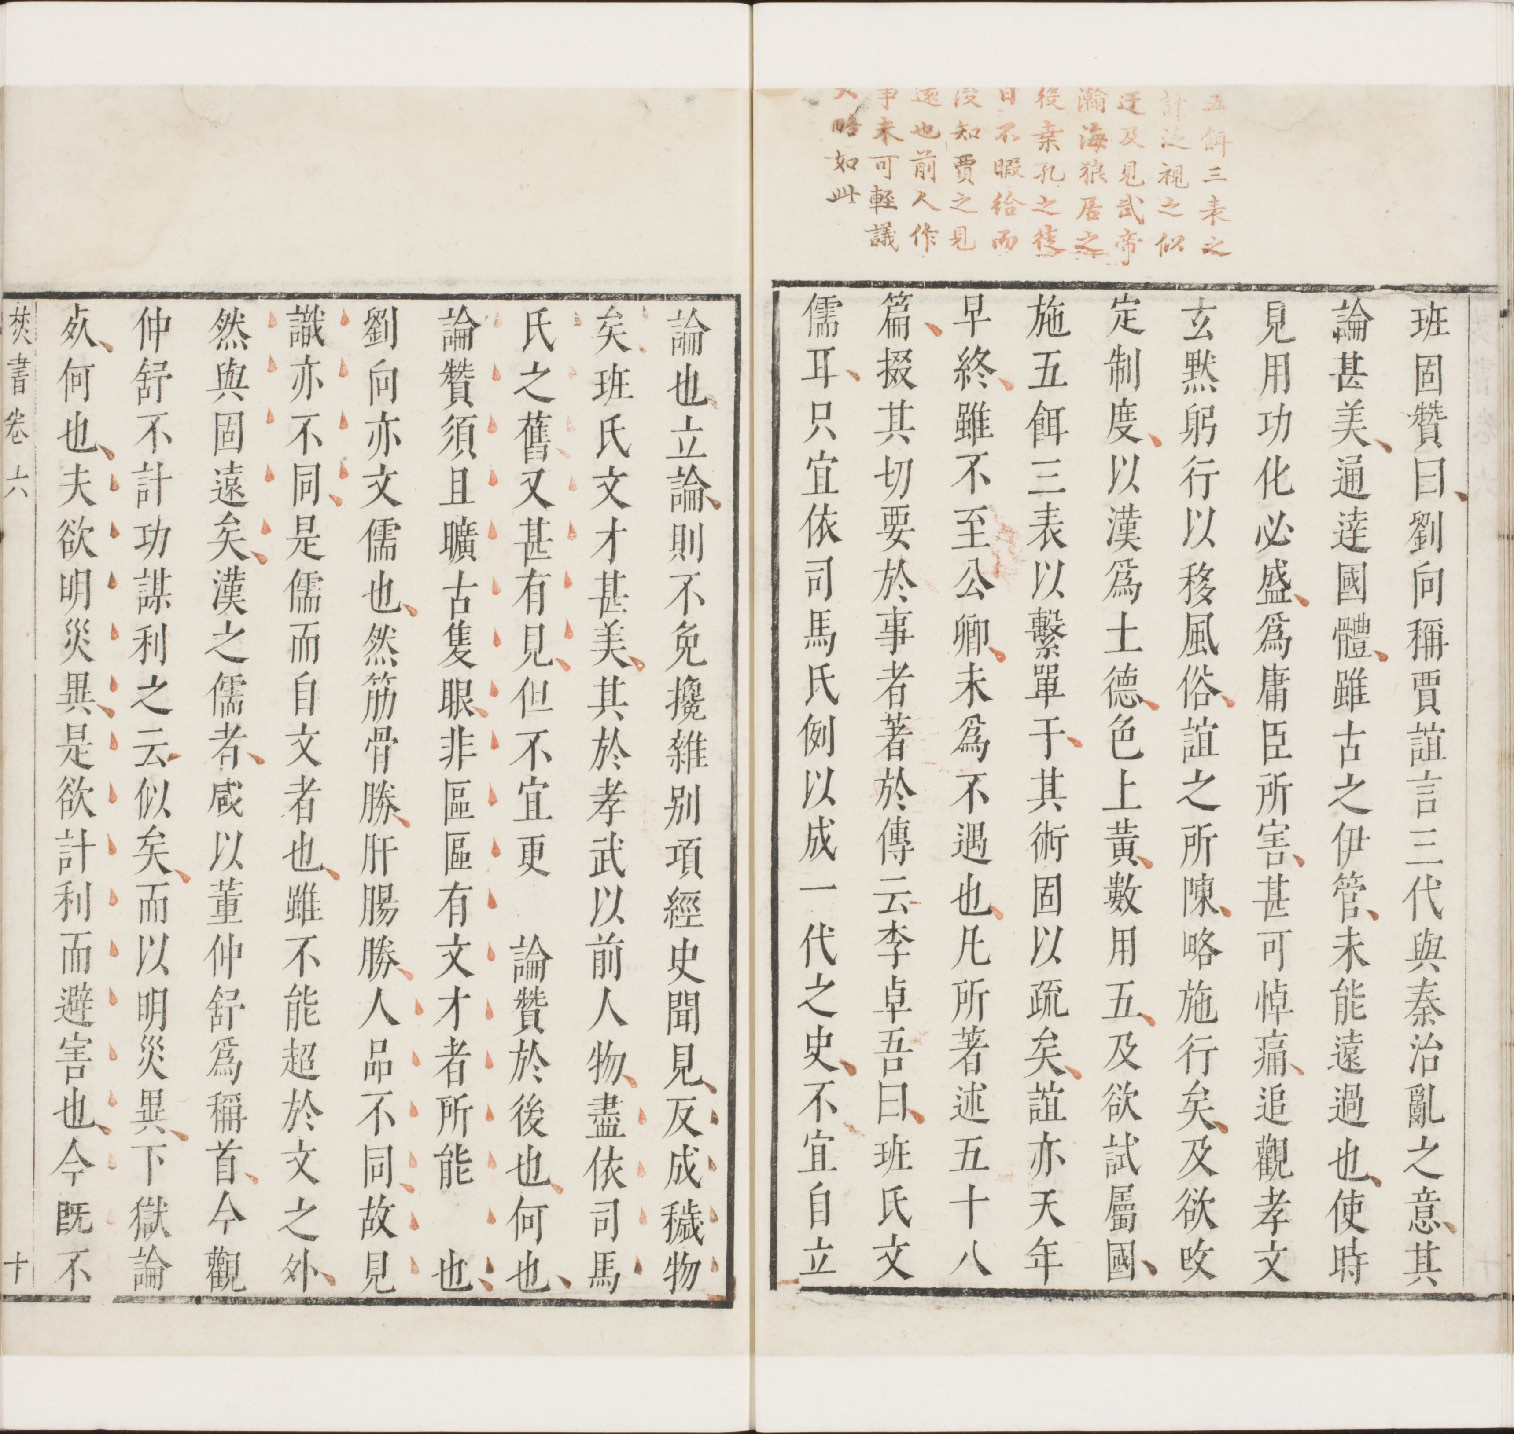 五餌三表之
計泛視之似
迂及見武帝
瀚海狼居之
後桒孔之徒
日不暇給而
後知賈之見
遠也前人作
事未可輕議
大略如此
班固贊曰劉向稱賈誼言三代與秦治亂之意其
論甚美通達國體雖古之伊管未能遠過也使時
見用功化必盛爲庸臣所害甚可悼痛追觀孝文
玄黙躬行以移風俗誼之所陳略施行矣及欲改
定制度以漢爲土德色上黃數用五及欲試屬國
施五餌三表以繫單于其術固以疏矣誼亦天年
早終雖不至公卿未爲不遇也凡所著述五十八
篇掇其切要於事者著於傳云李卓吾曰班氏文
儒耳只宜依司馬氏例以成一代之史不宜自立
論也立論則不免攙雜別項經史聞見反成穢物
矣班氏文才甚美其於孝武以前人物盡依司馬
氏之舊又甚有見但不宜更 論贊於後也何也
論贊須且曠古隻眼非區區有文才者所能 也
劉向亦文儒也然筋骨勝肝腸勝人品不同故見
識亦不同是儒而自文者也雖不能超於文之外
然與固遠矣漢之儒者咸以董仲舒爲稱首今觀
仲舒不計功謀利之云似矣而以明災異下獄論
㱠何也夫欲明災異是欲計利而避害也今既不
焚書卷六 十